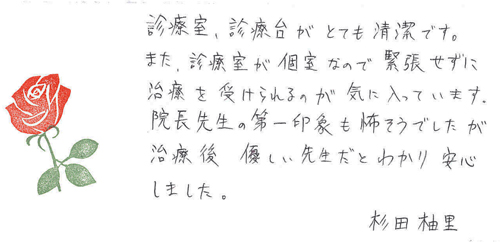 診療室、診療台がとても清潔です。
また、診療室が個室なので緊張せずに
治療を受けられるのが気に入っています。
院長先生の第一印象も怖そうでしたが
治療後 優しい先生だとわかり安心
しました。
杉田柚里